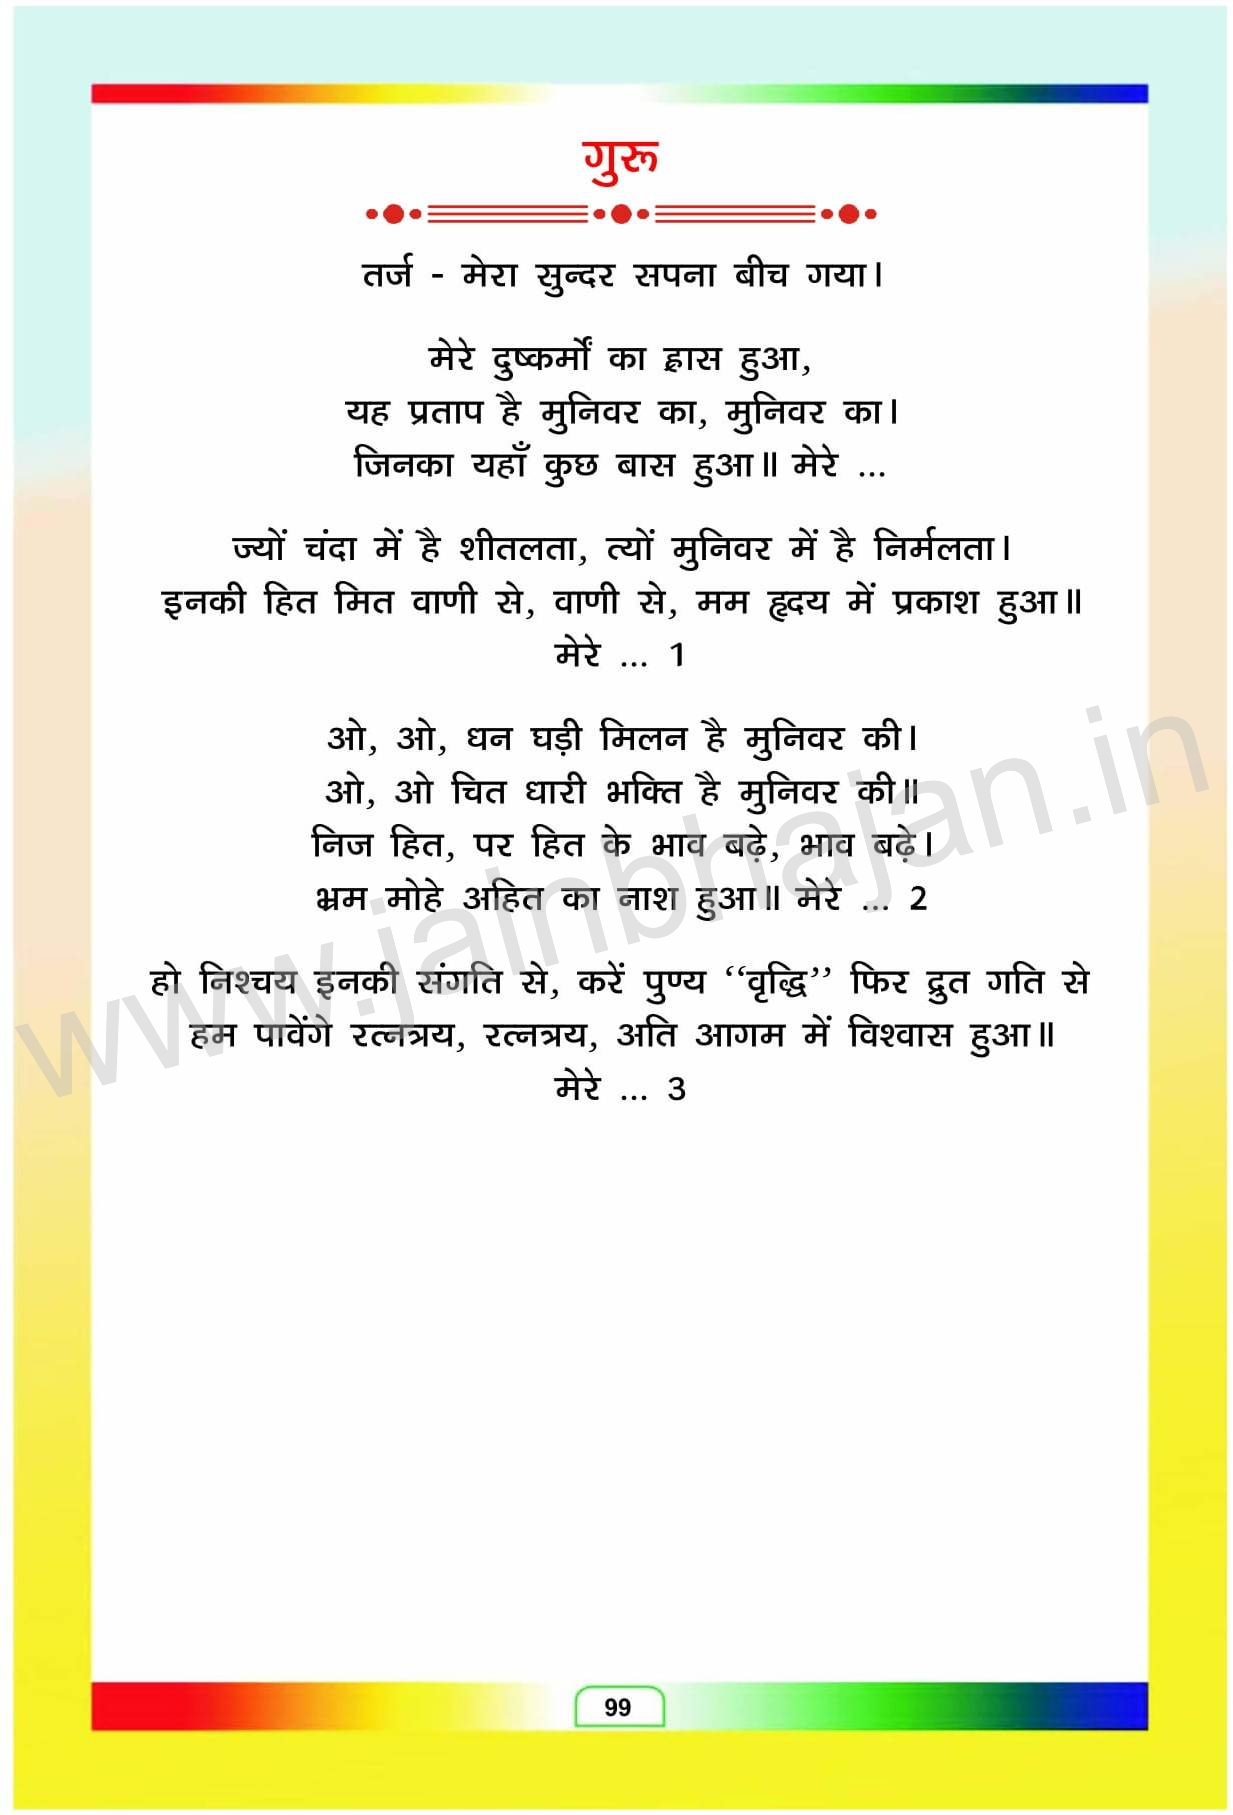 गुरू
तर्ज - मेरा सुन्दर सपना बीच गया।
मेरे दुष्कर्मों का ह्रास हुआ,
यह प्रताप है मुनिवर का, मुनिवर का।
जिनका यहाँ कुछ बास हुआ॥ मेरे ...
ज्यों चंदा में है शीतलता, त्यों मुनिवर में है निर्मलता।
इनकी हित मित वाणी से, वाणी से, मम हृदय में प्रकाश हुआ॥
मेरे ... 1
ओ, ओ, धन घड़ी मिलन है मुनिवर की।
ओ, ओ चित धारी भक्ति है मुनिवर की॥
निज हित, पर हित के भाव बढ़े, भाव बढ़े।
भ्रम मोहे अहित का नाश हुआ॥ मेरे ... 2
हो निश्चय इनकी संगति से, करें पुण्य ‘‘वृद्धि’’ फिर द्रुत गति से
हम पावेंगे रत्नत्रय, रत्नत्रय, अति आगम में विश्वास हुआ॥
मेरे ... 3
www.jainbhajan.in
99